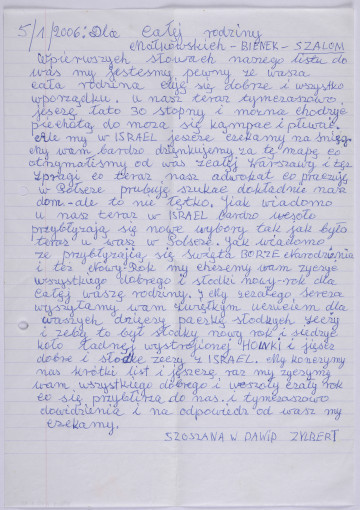 5/1/2006: Dla Całej rodziny
Małkowskich - BIENEK - SZALOM
Wpierwszych słowach naszego listu do
was my jesteśmy pewny ze wasza
cała rodzina czuję się dobrze i wszystko
wporządku. u nasz teraz tymczasowo
jeszcze lato 30 stopny i można chodzyć
piechotą do moża się kąmpać i pluwać.
ale my w ISRAEL jeszcze czekamy na śnieg.
My wam bardzo dzienkujemy za tę mapę co
otrzymaliśmy od was zcałej Warszawy i też
zpragi co teraz nasz adwokat co pracuję
w Polscze prubuję szukać dokładnie nasz
dom - ale to nie łętko. Jak wiadomo
u nasz teraz w ISRAEL bardzo wesoło
przyblyzają się nowe wybory tak jak było
teraz u was w Polscze. Jak wiadomo
ze przyblyzają się święta BORZE Narodzenia
i też Nowy Rok my chcemy wam zyczyć
wszystkiego dobrego i słodki nowy-rok dla
Całej waszej rodziny. I My zcałego serca
wysztyłamy wam zwielkim uczuciem dla
waszych dziejeży paczkę słodkych żeczy
i zeby to był słodky nowy rok i siedzyć
koło ładnej wystrojonej HOINKI i jęść
dobre i słodke żeczy z ISRAEL. My kończymy
nasz krótki list i jeszcze raz my zyczymy
wam wszystkiego dobrego i wesoły czały rok
co się przyblyza do nas. i tymczasowo
dowidzenia i na odpowiedz od wasz my
czekamy.
SZOSZANA W DAWID ZYLBERT